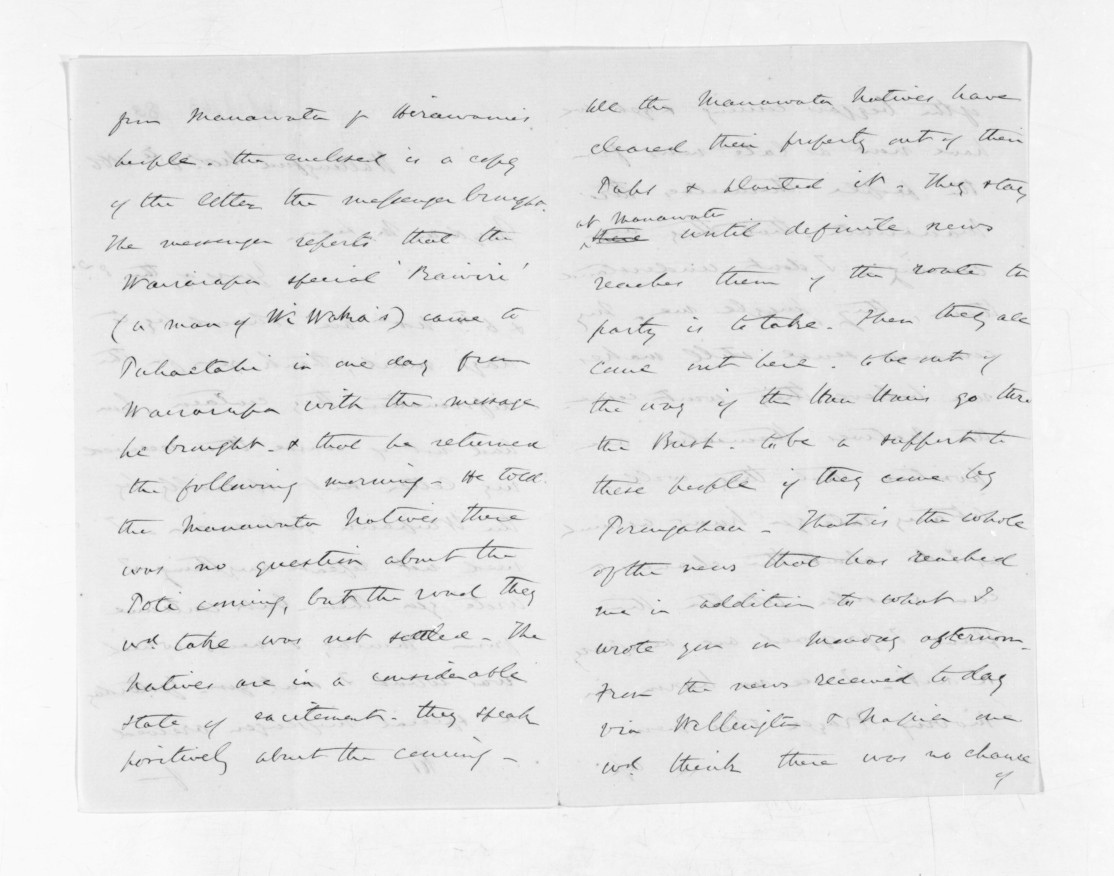 from Manawatu for Hirawanu's
people the enclosed is a copy
of the letter the messenger brought.
The messenger reports that the
Wairarapa special 'Raiwiri'
(a man of Wi Waka's) came to
Puhaetahi in one day from
Wairarapa with the message
he brought & that he returned
the following morning - He told
the Manawatu Natives there
was no question about the
Poti coming, but the road they
wd. take was not settled - The
Natives are in a considerable
state of excitement - they speak
positively about the coming -
All the Manawatu Natives have
cleared their property out of their
Pahs & planted it - They stay
at Manawatu
there until definite news
reaches them of the route the
party is to take. Then they all
come out here. to be out of
the way if the Hau Haus go thro
the Bush - to be a support to
these people if they come by
Porangahau - That is the whole
of the news that has reached
me in addition to what I
wrote you on Monday afternoon -
From the news received today
via Wellington & Napier one
wd. think there was no chance
of